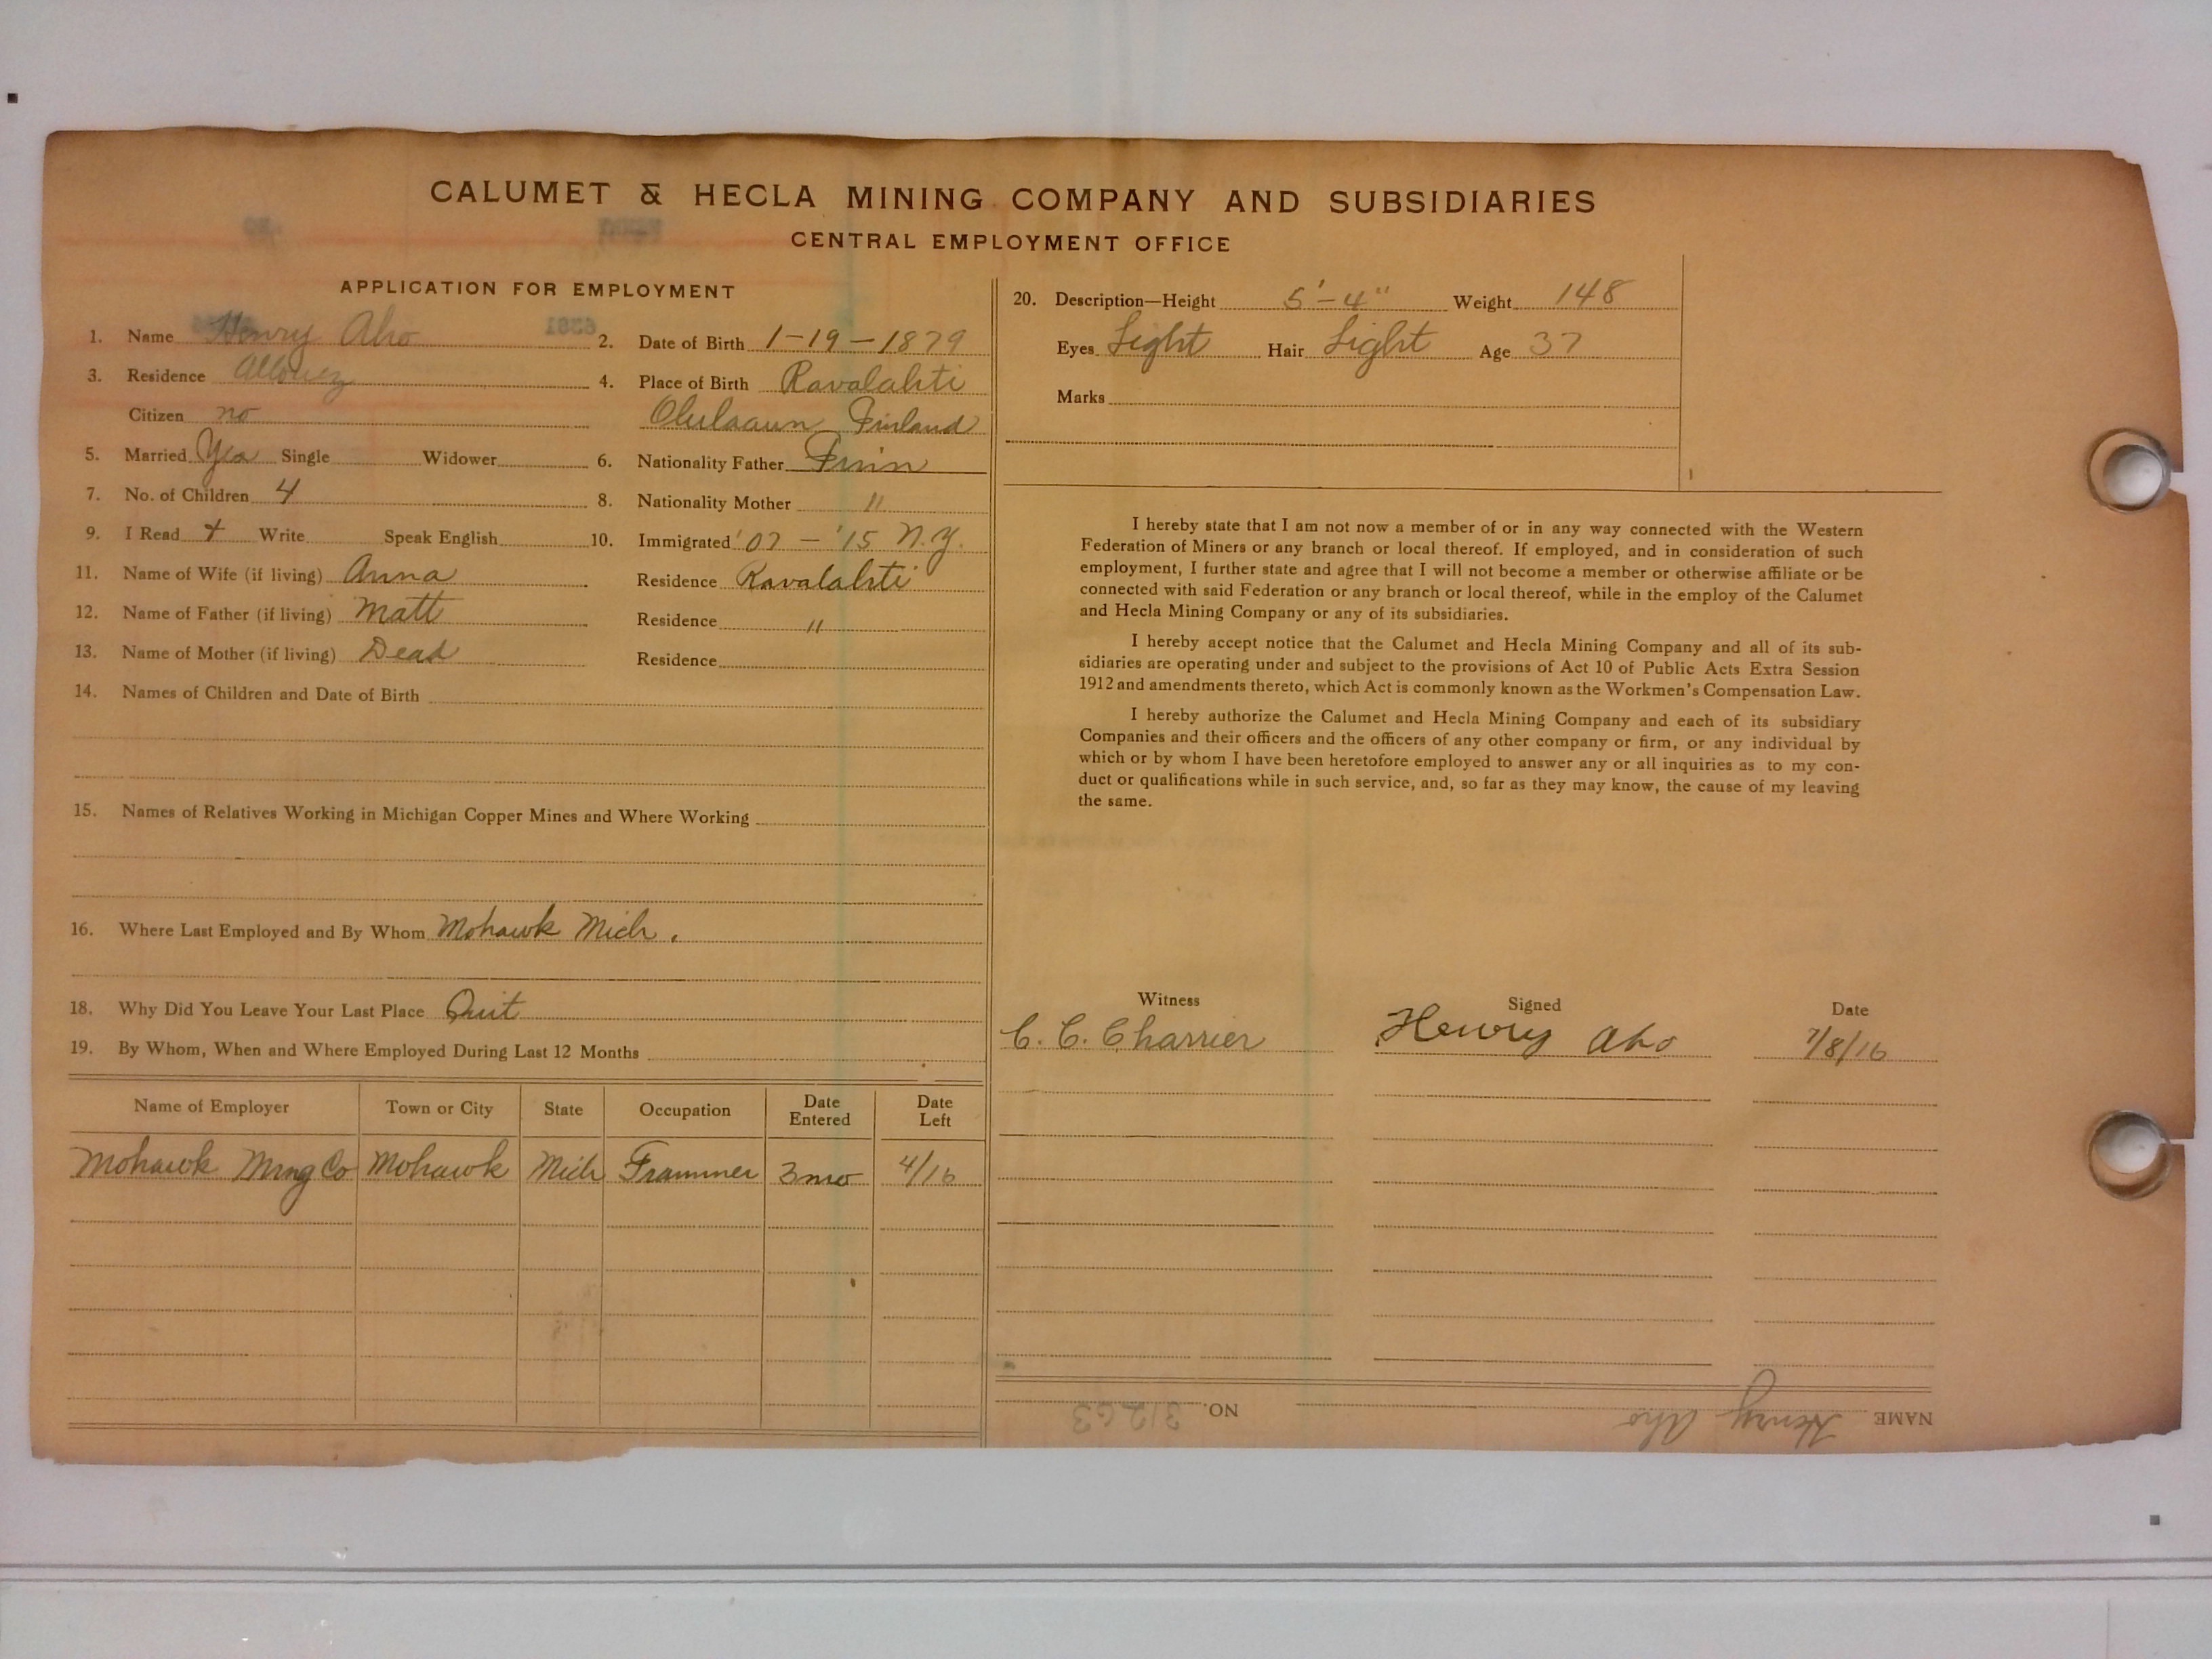 CALUMET & HECLA MINING COMPANY AND SUBSIDIARIES
CENTRAL EMPLOYMENT OFFICE
APPLICATION FOR EMPLOYMENT
1. Name Henry Aho 2. Date of Birth 1-19-1879
3. Residence Allouez 4. Place of Birth Ravalahti
Citizen no Finland
5. Married Yes Single Widower 6. Nationality Father Finn
7. No. of Children 4 8. Nationality Mother "
9. I Read + Write Speak English 10. Immigrated '07 - '15 N.Y.
11. Name of Wife (if living) Anna Residence Ravalahti
12. Name of Father (if living) Matt Residence "
13. Name of Mother (if living) Dead Residence
14. Names of Children and Date of Birth
15. Names of Relatives Working in Michigan Copper Mines and Where Working
16. Where Last Employed and By Whom Mohawk Mich.
18. Why Did You Leave Your Last Place Quit
19. By Whom, When and Where Employed During Last 12 Months
Name of Employer Town or City State Occupation Date Entered Date Left
Mohawk Mng Co Mohawk Mich Trammer 3 mo 4/16
20. Description—Height 5'-4" Weight 148
Eyes Light Hair Light Age 37
Marks
I hereby state that I am not now a member of or in any way connected with the Western
Federation of Miners or any branch or local thereof. If employed, and in consideration of such
employment, I further state and agree that I will not become a member or otherwise affiliate or be
connected with said Federation or any branch or local thereof, while in the employ of the Calumet
and Hecla Mining Company or any of its subsidiaries.
I hereby accept notice that the Calumet and Hecla Mining Company and all of its sub-
sidiaries are operating under and subject to the provisions of Act 10 of Public Acts Extra Session
1912 and amendments thereto, which Act is commonly known as the Workmen's Compensation Law.
I hereby authorize the Calumet and Hecla Mining Company and each of its subsidiary
Companies and their officers and the officers of any other company or firm, or any individual by
which or by whom I have been heretofore employed to answer any or all inquiries as to my con-
duct or qualifications while in such service, and, so far as they may know, the cause of my leaving
the same.
Witness Signed Date
C. C. Charrier Henry Aho 7/8/16
NAME Henry Aho NO. 31263